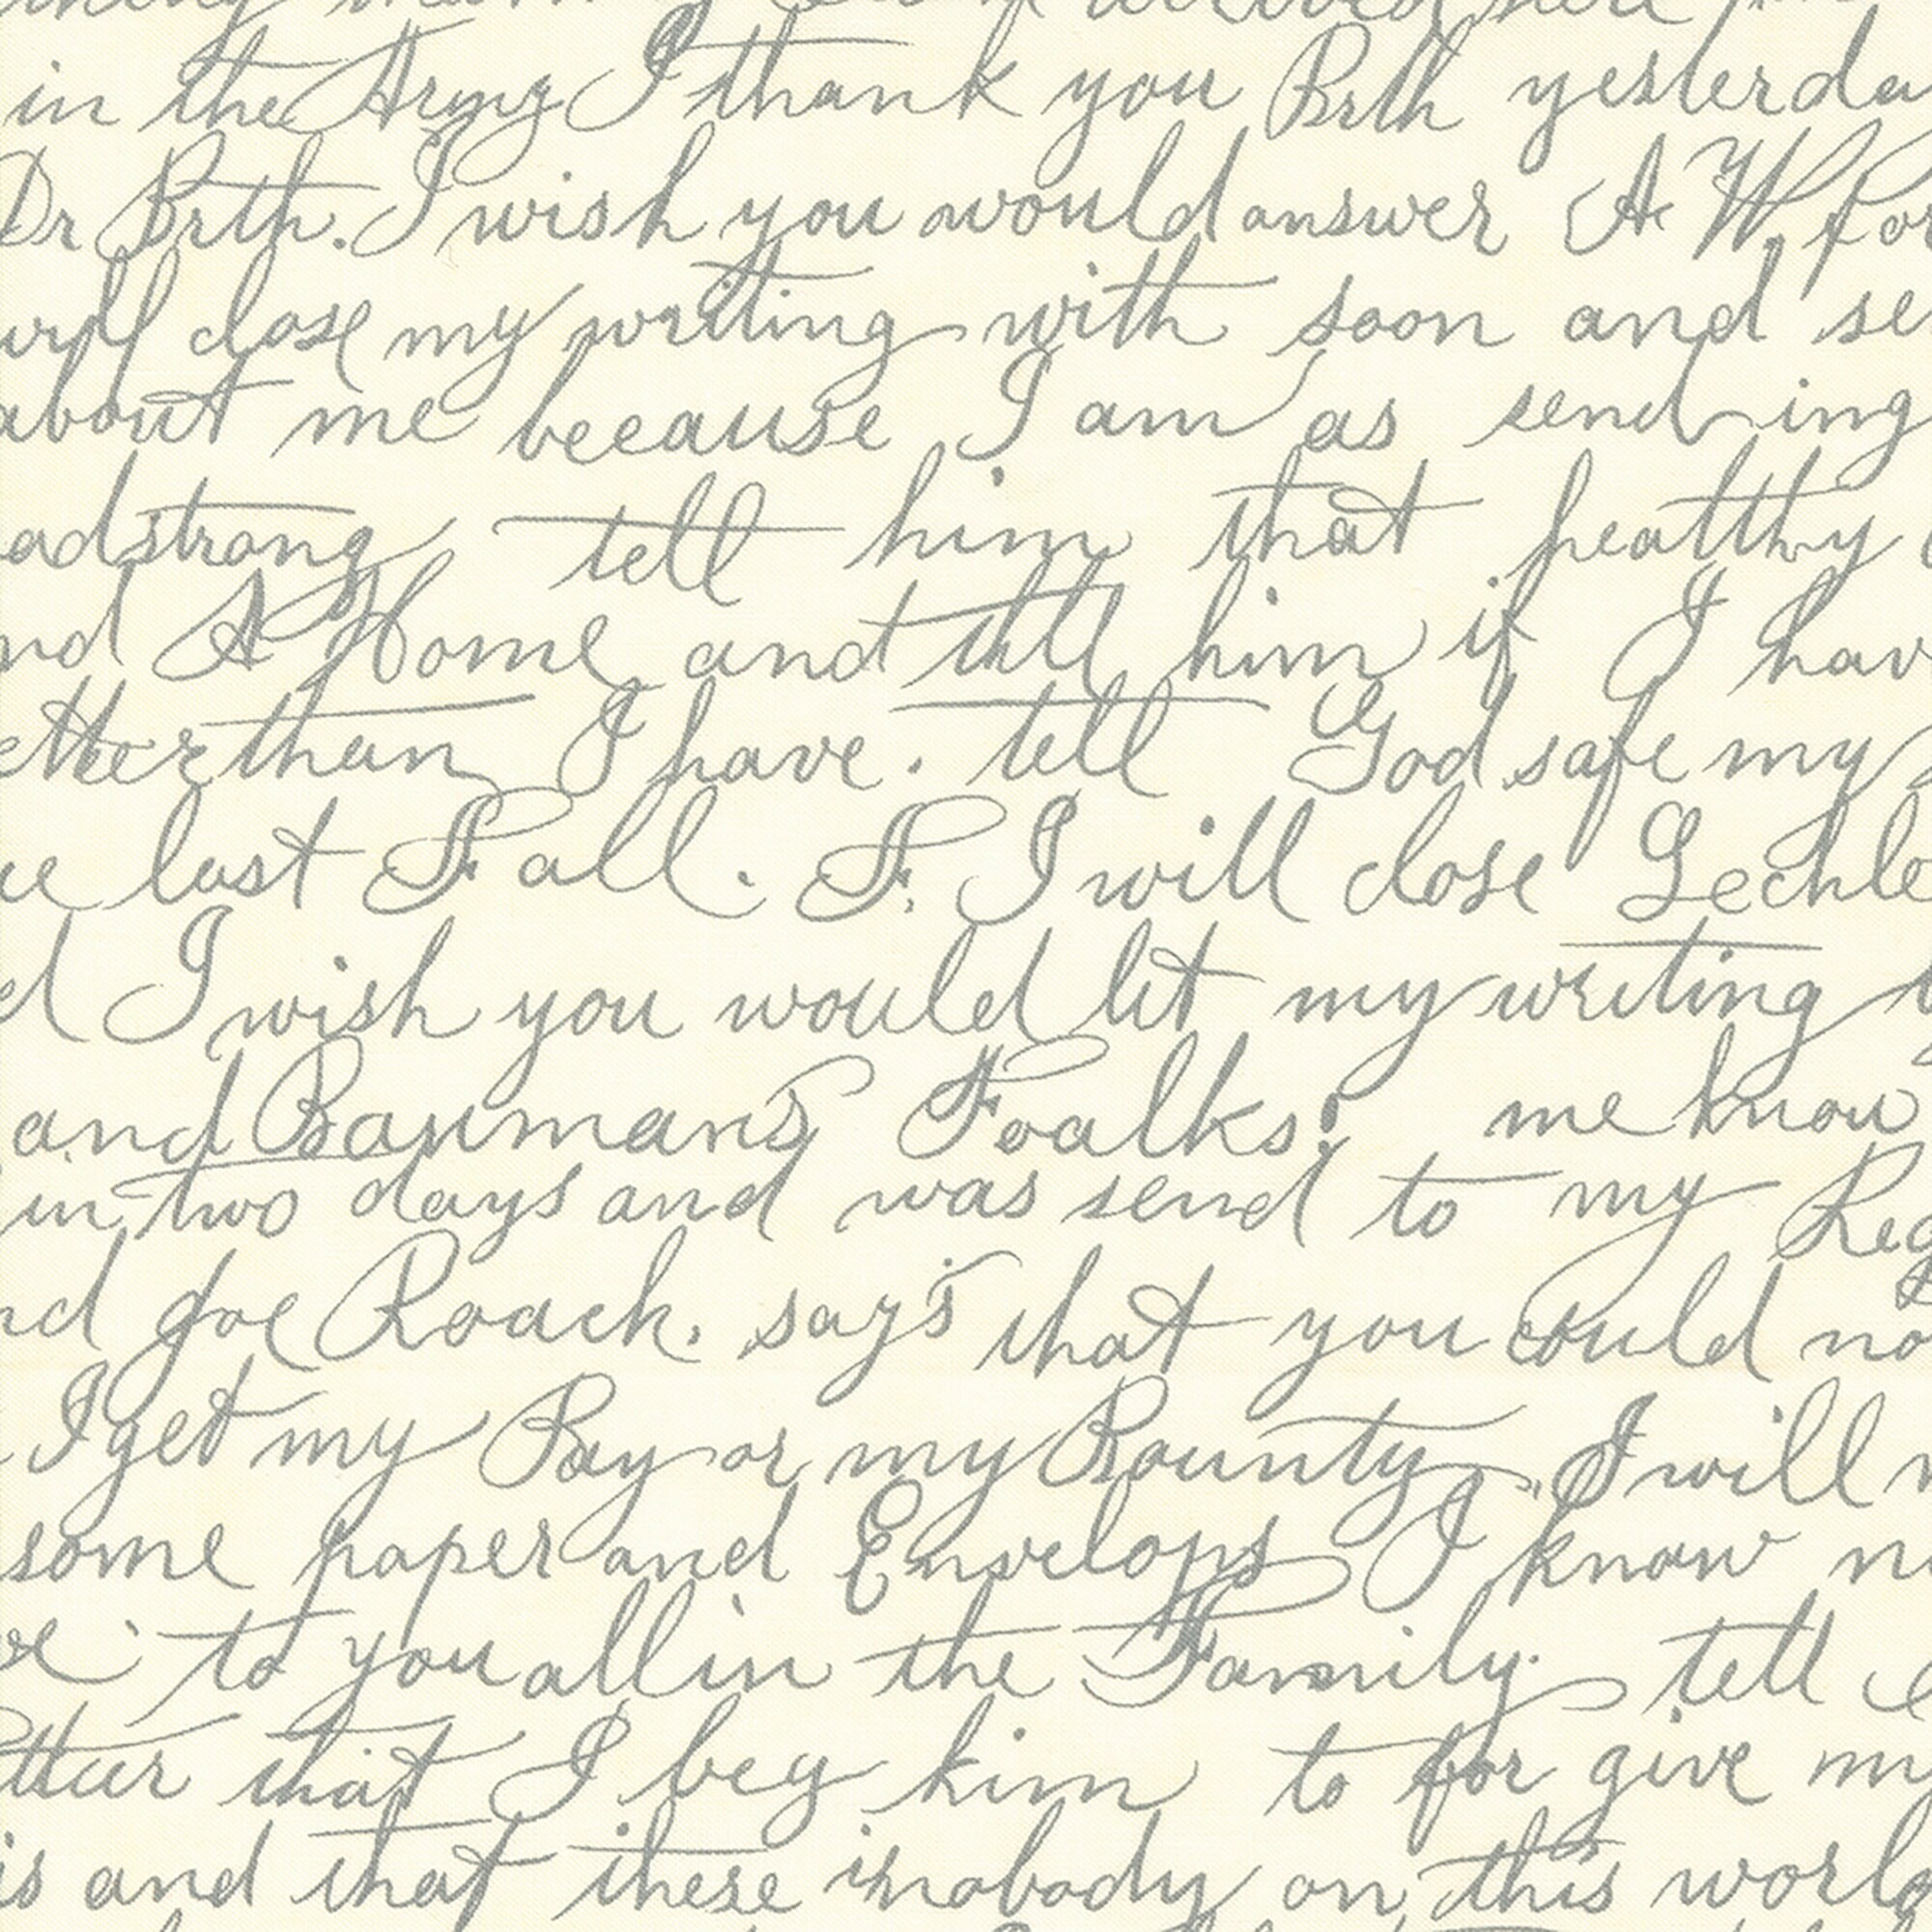 in the Army I thank you Brth yesterda
Dr Brth. I wish you would answer A W. for
will close my writing with soon and se
about me beeause I am as sending
adstrong tell him that healthy
nd A Home and till him if I hav
etter than I have. tell God safe my
ue last Fall. F. I will close Lechle
d I wish you would let my writing
and Baumans Foalks! me know
in two days and was send to my Reg
nd Joe Roach. says that you could no
I get my Pay or my Bounty. I will
some paper and Envelops I know n
to you all in the Family. tell
etter that I beg him to for give my
is and that these is nobody on this world